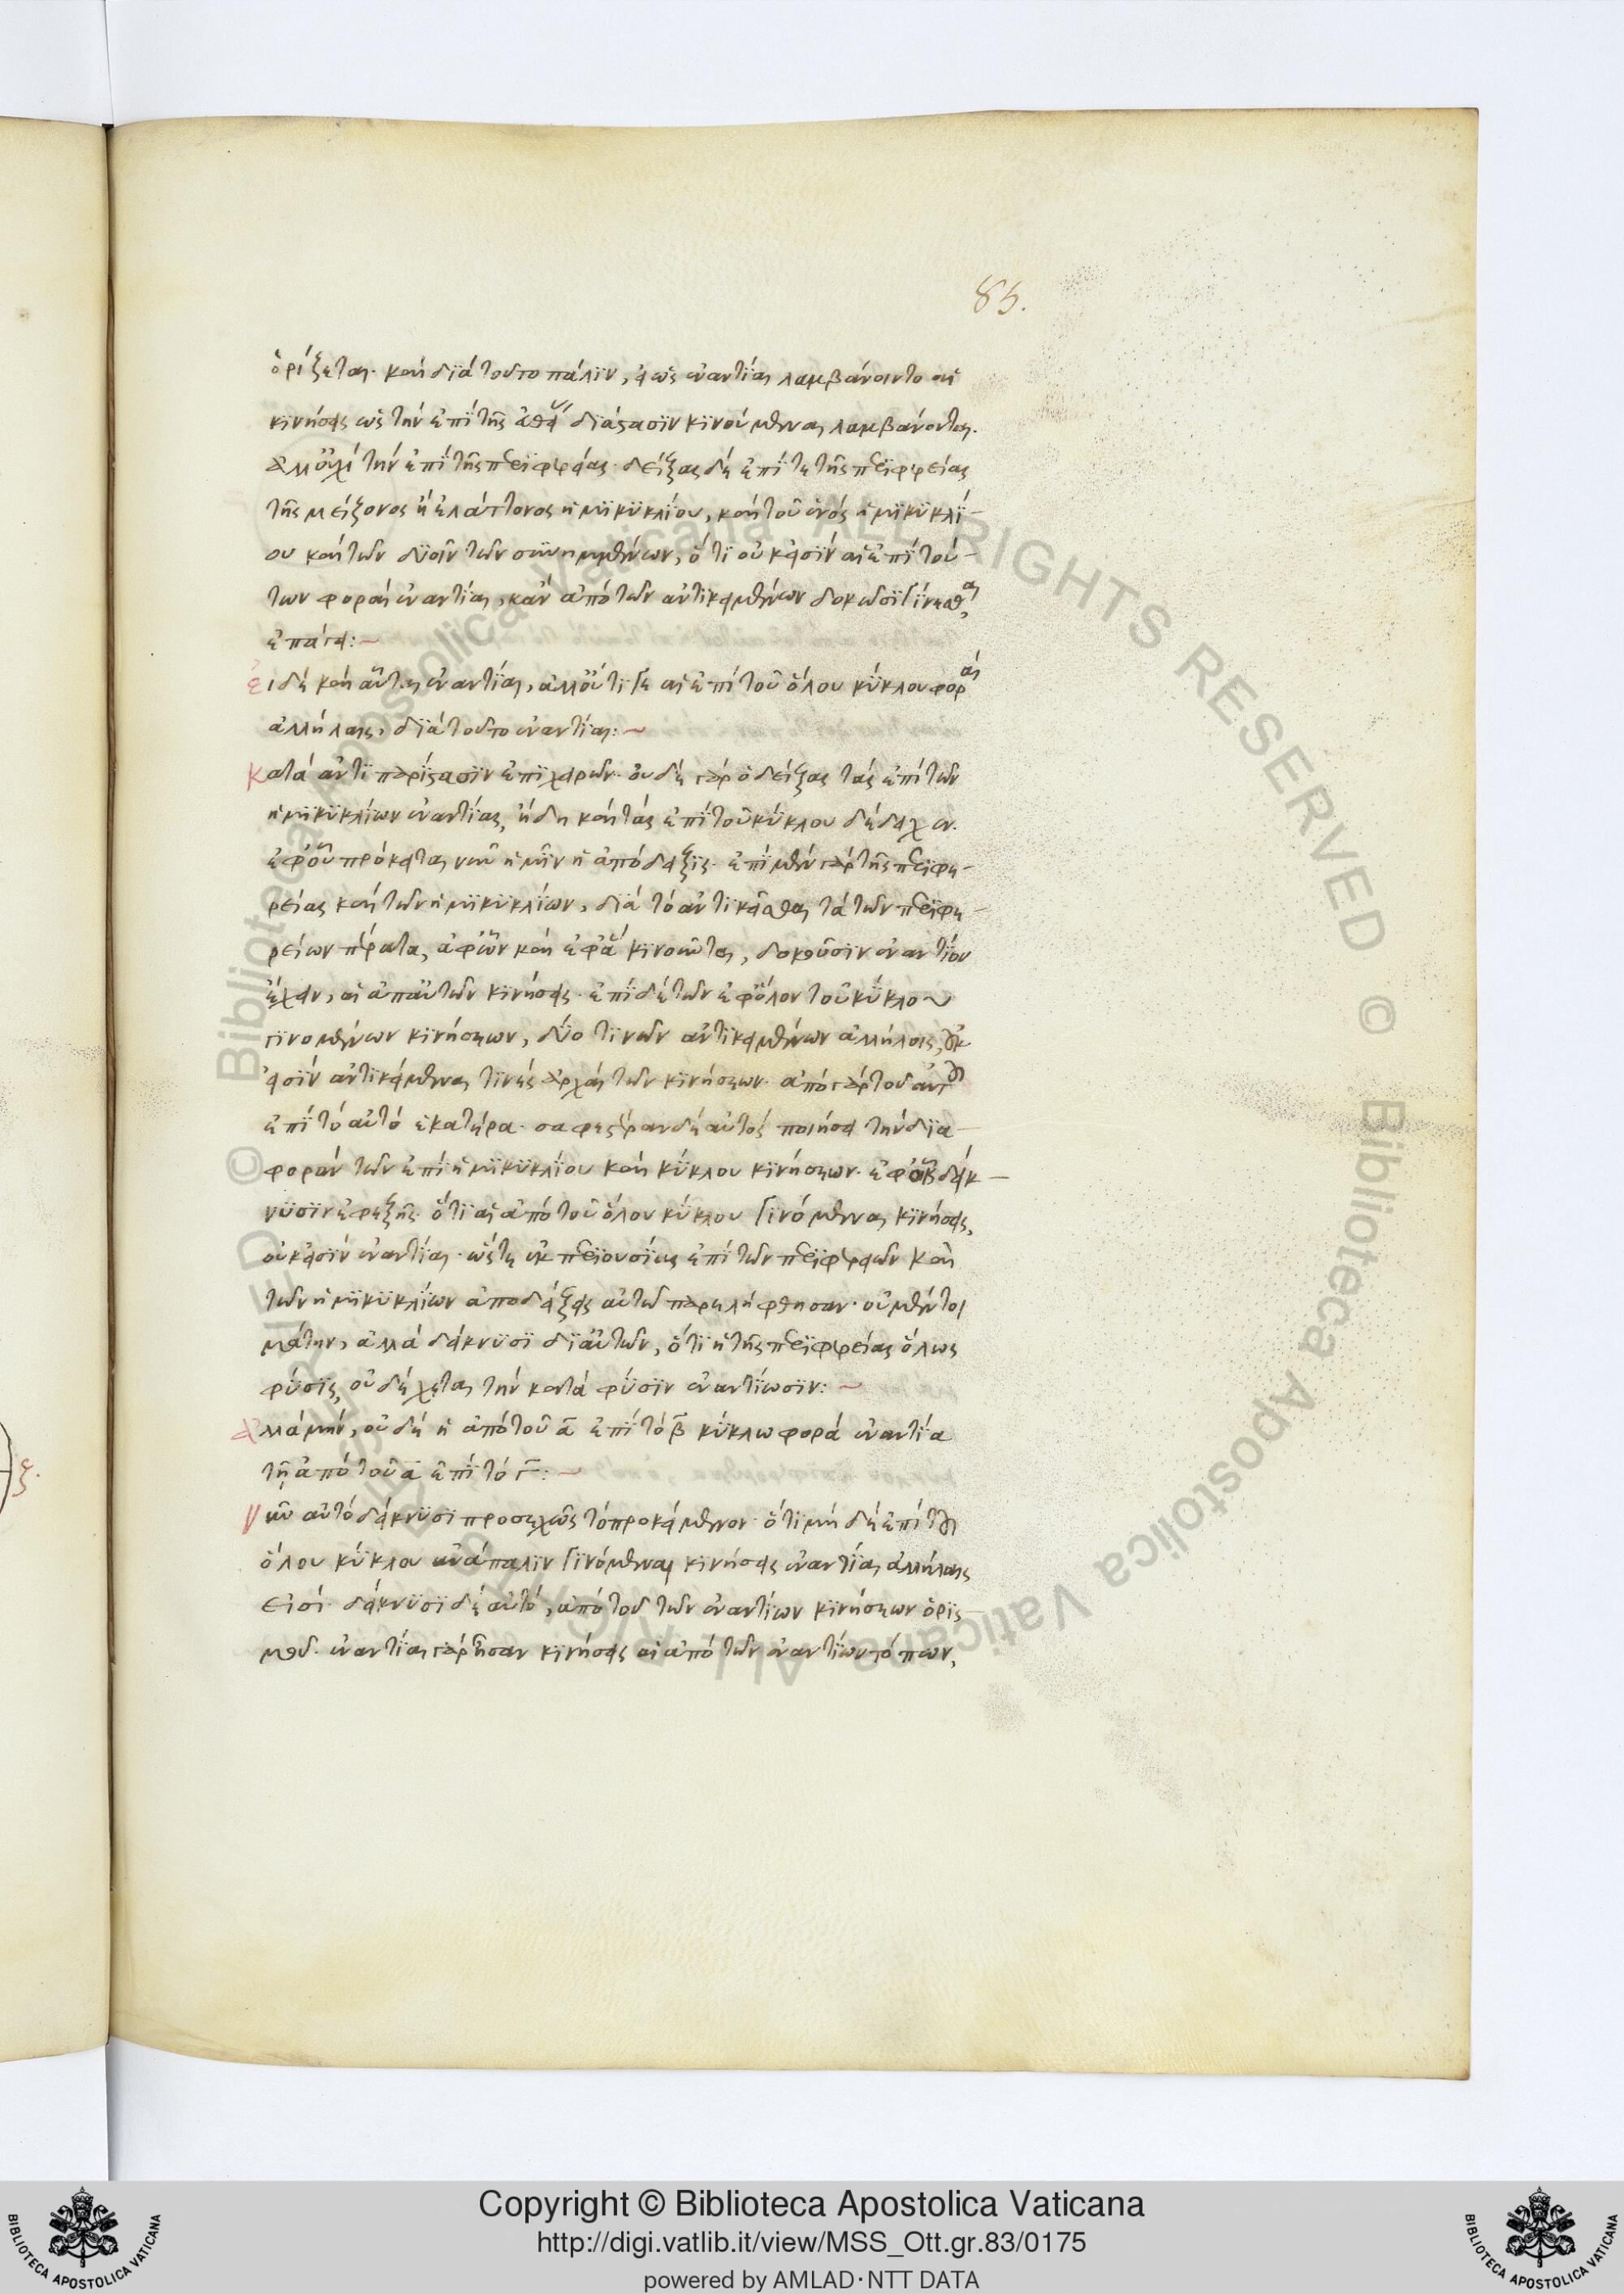 85.
ὁρίζεται. καὶ διὰ τοῦτο πάλιν, εἰ ὡς ἐναντίαι λαμβάνοιντο αἱ
κινήσεις ὡς τὴν ἐπὶ τῆς εὐθείας διάστασιν κινούμεναι λαμβάνονται.
ἀλλ' οὐχὶ τὴν ἐπὶ τῆς περιφερείας. δείξας δὲ ἐπί τε τῆς περιφερείας
τῆς μείζονος ἢ ἐλάττονος ἡμικυκλίου, καὶ τοῦ ἑνὸς ἡμικυκλί-
ου καὶ τῶν δυοῖν τῶν συνημμένων, ὅτι οὐκ εἰσὶν αἱ ἐπὶ τού-
των φοραὶ ἐναντίαι, κἂν ἀπὸ τῶν ἀντικειμένων δοκῶσι γίνεσθαι,
ἐπάγει:~
εἰ δὲ καὶ αὗται ἐναντίαι, ἀλλ' οὔτι γε αἱ ἐπὶ τοῦ ὅλου κύκλου φοραὶ
ἀλλήλαις, διὰ τοῦτο ἐναντίαι:~
Κατὰ ἀντιπαρίστασιν ἐπιχειρῶν. οὐδὲ γὰρ ὁ δείξας τὰς ἐπὶ τῶν
ἡμικυκλίων ἐναντίας, ἤδη καὶ τὰς ἐπὶ τοῦ κύκλου δέδειχεν.
ἐφ' οὗ πρόκειται νῦν ἡμῖν ἡ ἀπόδειξις. ἐπὶ μὲν γὰρ τῆς περιφε-
ρείας καὶ τῶν ἡμικυκλίων, διὰ τὸ ἀντικεῖσθαι τὰ τῶν περιφε-
ρείων πέρατα, ἀφ' ὧν καὶ ἐφ' ἃ κινοῦνται, δοκοῦσιν ἐναντίον
ἔχειν, αἱ ἀπ' αὐτῶν κινήσεις. ἐπὶ δὲ τῶν ἐφ' ὅλου τοῦ κύκλου
γινομένων κινήσεων, δύο τινῶν ἀντικειμένων ἀλλήλοις, οὐκ
εἰσὶν ἀντικείμεναί τινες ἀρχαὶ τῶν κινήσεων. ἀπὸ γὰρ τοῦ αὐτοῦ
ἐπὶ τὸ αὐτὸ ἑκατέρα. σαφεστέραν δὲ αὐτὸς ποιήσει τὴν δια-
φορὰν τῶν ἐπὶ ἡμικυκλίου καὶ κύκλου κινήσεων. ἐφ' οὗ δείκ-
νυσιν ἐφεξῆς ὅτι αἱ ἀπὸ τοῦ ὅλου κύκλου γινόμεναι κινήσεις,
οὐκ εἰσὶν ἐναντίαι. ὥστε ἐκ περιουσίας ἐπὶ τῶν περιφερειῶν καὶ
τῶν ἡμικυκλίων ἀποδείξεις αὐτῷ παρελήφθησαν. οὐ μέντοι
μάτην, ἀλλὰ δείκνυσι δι' αὐτῶν, ὅτι ἡ τῆς περιφερείας ὅλως
φύσις, οὐ δέχεται τὴν κατὰ φύσιν ἐναντίωσιν:~
ἀλλὰ μὴν, οὐδὲ ἡ ἀπὸ τοῦ ᾱ ἐπὶ τὸ β̄ κύκλω φορὰ ἐναντία
τῇ ἀπὸ τοῦ ᾱ ἐπὶ τὸ γ̄:~
νῦν αὐτὸ δείκνυσι προσεχῶς τὸ προκείμενον. ὅτι μὴ δὲ ἐπὶ τοῦ
ὅλου κύκλου ἀνάπαλιν γινόμεναι κινήσεις ἐναντίαι ἀλλήλαις
εἰσί. δείκνυσι δὲ αὐτὸ, ἀπὸ τοῦ τῶν ἐναντίων κινήσεων ὁρισ-
μοῦ. ἐναντίαι γὰρ ἦσαν κινήσεις αἱ ἀπὸ τῶν ἐναντίων τόπων,
ξ.
Copyright © Biblioteca Apostolica Vaticana
http://digi.vatlib.it/view/MSS_Ott.gr.83/0175
powered by AMLAD·NTT DATA